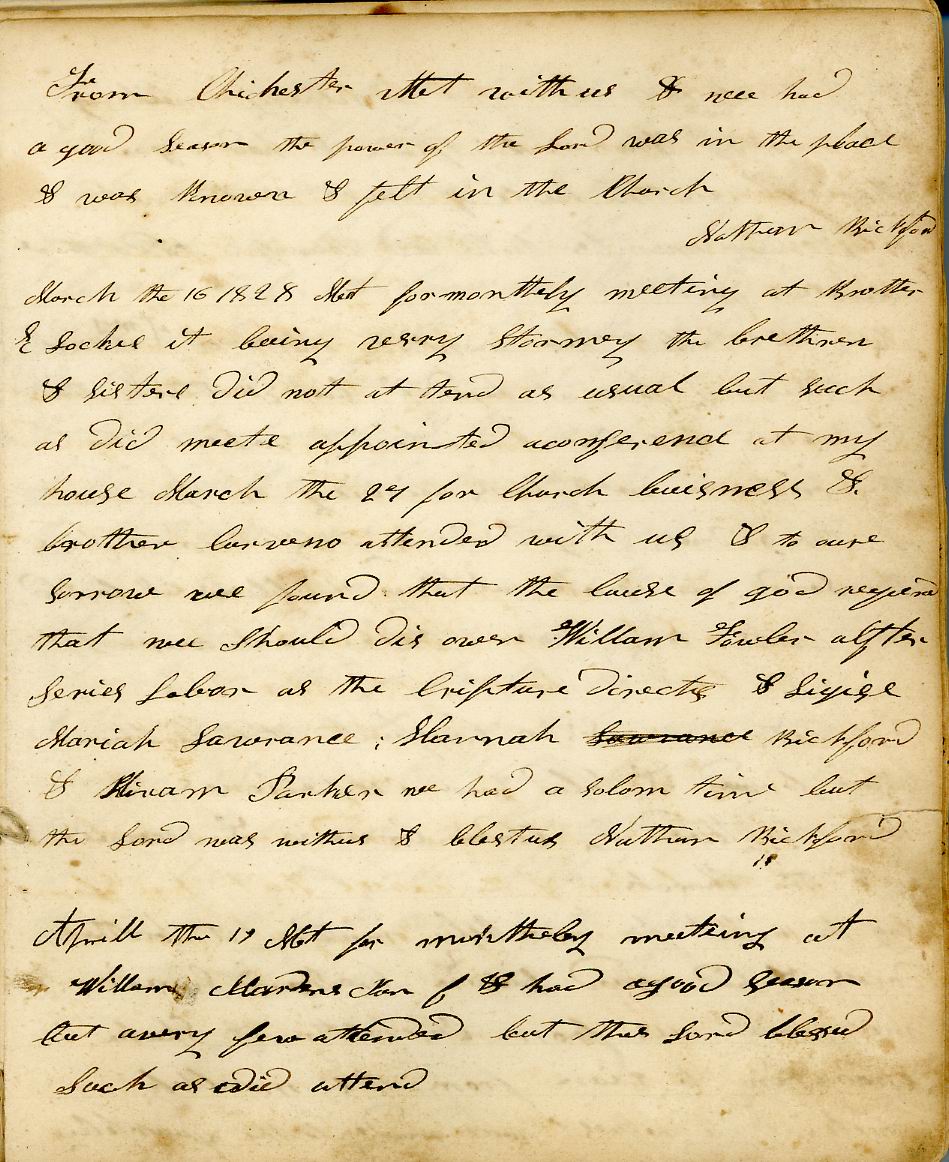 From Chichester Met with us & wee had
a good Season the power of the Lord was in the place
& was Known & felt in the Church
Nathan Bickford
March the 16 1828 Met for monthely meeting at Brother
E Lockes it being verry Stormey the brethren
& Sisters Did not at tend as usual but such
as Did meete appointed a conference at my
house March the 27 for Church buisness &
brother attended with us & to oure
Sorrow wee found that the Cause of god
that wee Should Dis oven Willam Fowler alfter
Series Labor as the Cripture Directs &
Mariah Lawrance ; Hannah Lawrance Bickford
& Hiram Parker we had a Solom time but
the Lord was withus & blestus Nathan Bickford
Aprill the 19 Met for montheley meeting at
Willam & had a good Season
but a very few attended but the Lord blessed
Such as did attend